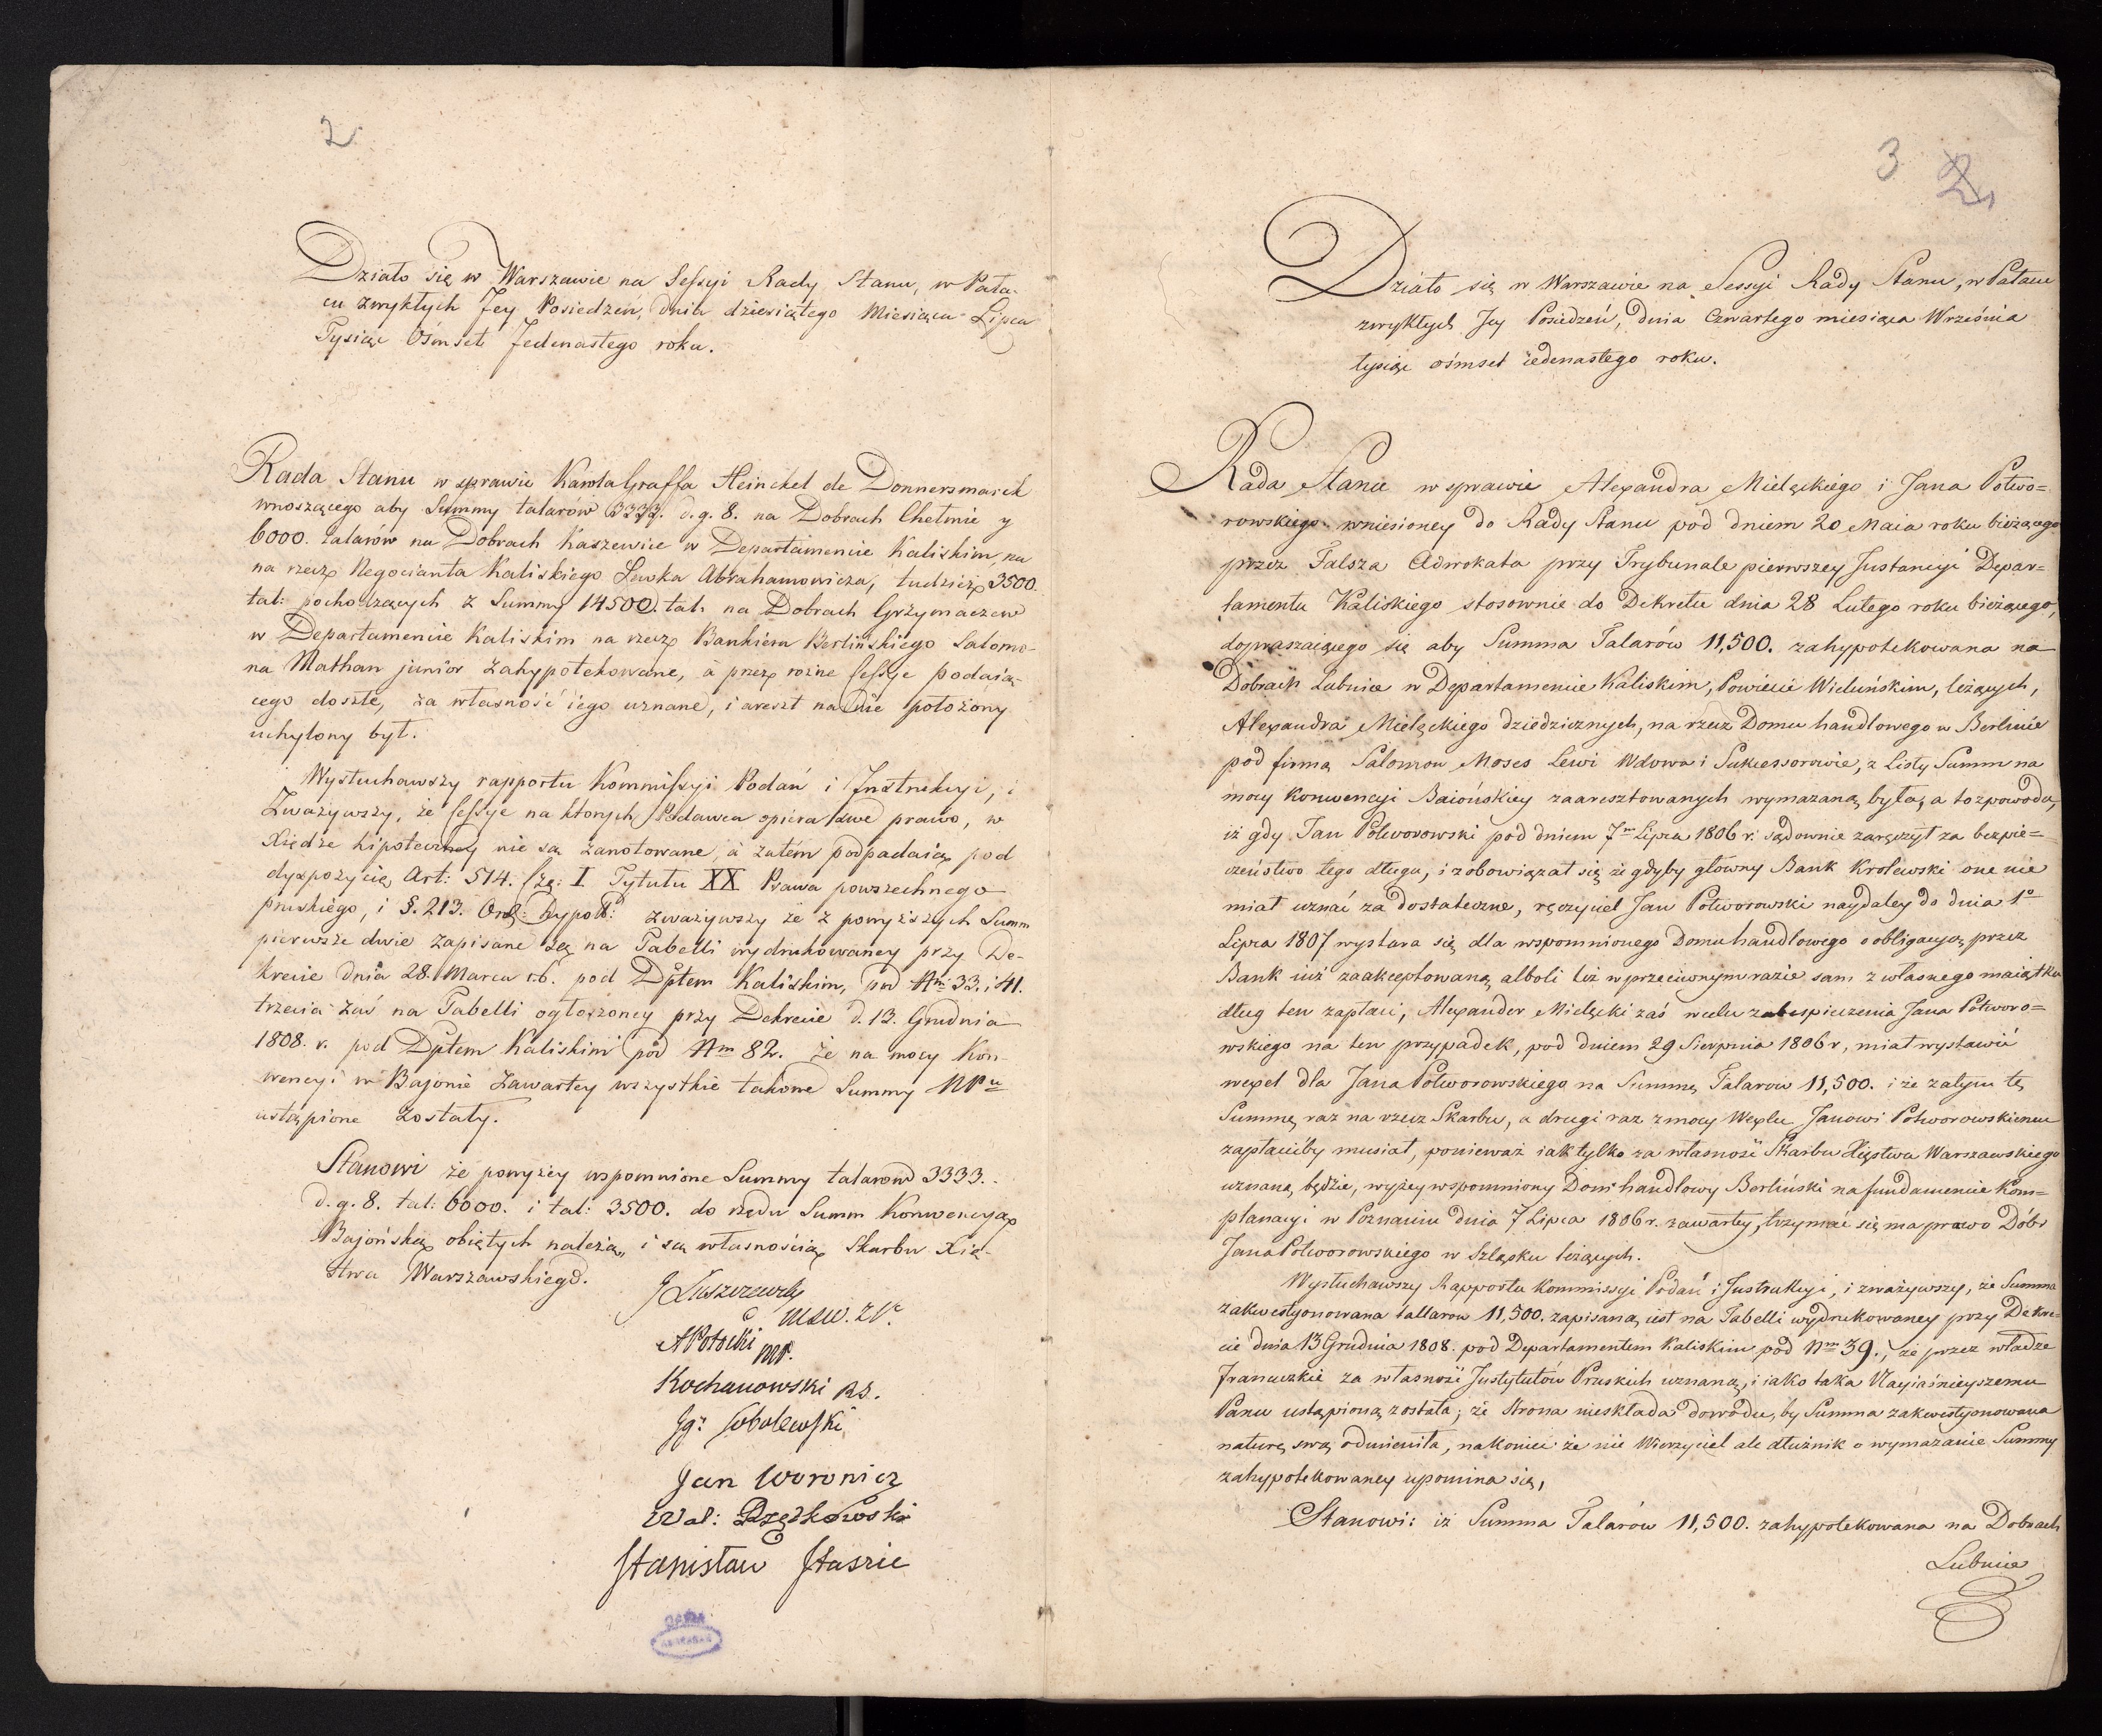 2
Działo się w Warszawie na Sessyi Rady Stanu, w Pała-
cu zwykłych Jey Posiedzeń, dnia dziesiątego Miesiąca Lipca
Tysiąc Ośmset Jedenastego roku.
Rada Stanu w sprawie Karola Graffa Heinckel de Donnersmarck
wnoszącego aby Summy talarów 3333. d.g. 8. na Dobrach Chełmie y
6000. talarów na Dobrach Kaszewice w Departamencie Kaliskim, na
na rzecz Negocianta Kaliskiego Lewka Abrahamowicza, tudzież 3500.
tal: pochodzących z Summy 14500. tal. na Dobrach Grzymaczew
w Departamencie Kaliskim na rzecz Bankiera Berlińskiego Salomo-
na Nathan junior zahypotekowane, à przez rożne Cessye podaią-
cego doszłe, za własność iego uznane, i areszt na nie położony
uchylony był.
Wysłuchawszy rapportu Kommissyi Podań i Instrukcyi, i
Zważywszy, że Cessye na ktorych Podawca opiera swe prawo, w
Xiędze hipoteczney nie są zanotowane, à zatém podpadaią pod
dyspozycią Art: 514. Czę: I Tytułu XX Prawa powszechnego
pruskiego, i §. 213. Ord: hypot: zważywszy że z powyższych Summ
pierwsze dwie zapisane są na Tabelli wydrukowaney przy De-
krecie dnia 28. Marca r.b. pod Dptem Kaliskim, pod Nm 33. i 41.
trzecia zaś na Tabelli ogłoszoney przy Dekrecie d. 13. Grudnia
1808. r. pod Dptem Kaliskim pod Nm 82. że na mocy Kon-
wencyi w Bajonie zawartey wszystkie takowe Summy NPu
ustąpione zostały.
Stanowi że powyżey wspomnione Summy talarow 3333.
d.g. 8. tal: 6000. i tal: 3500. do rzędu Summ Konwencyą
Bajońską obiętych należą, i są własnością Skarbu Xię-
stwa Warszawskiego.
J Łuszczewsky
APotocki
Kochanowski RS.
Ig: Sobolewski
Jan Woronicz
Wal:
Stanisław Staszic
3 2
Działo się w Warszawie na Sessyi Rady Stanu, w Pałacu
zwykłych Jey Posiedzeń, dnia Czwartego miesiąca Września
tysiąc ośmset iedenastego roku.
Rada Stanu w sprawie Alexandra Mielęckiego i Jana Potwo=
rowskiego wniesioney do Rady Stanu pod dniem 20 Maia roku bieżącego
przez Falsza Adwokata przy Trybunale pierwszey Instancyi Depar=
tamentu Kaliskiego stosownie do Dekretu dnia 28 Lutego roku bieżącego,
dopraszaiącego się aby Summa Talarów 11,500. zahypotekowana na
Dobrach Lubnice w Departamencie Kaliskim, Powiecie Wieluńskim, leżących,
Alexandra Mielęckiego dziedzicznych, na rzecz Domu handlowego w Berlinie
pod firmą Salomon Moses Lewi Wdowa i Sukcessorowie, z Listy Summ na
mocy Konwencyi Baiońskiey zaaresztowanych wymazaną była, a to z powodu,
iż gdy Jan Potworowski pod dniem 7m Lipca 1806 r. sądownie zaręczył za bezpie=
czeństwo tego długu, i zobowiązał się że gdyby główny Bank Krolewski one nie
miał uznać za dostateczne, ręczyciel Jan Potworowski naydaley do dnia 1o
Lipca 1807 wystara się dla wspomnionego Domu handlowego o obligacyą przez
Bank iuż zaakceptowaną, alboli też w przeciwnym razie sam z własnego maiątku
dług ten zapłaci, Alexander Mielęcki zaś w celu zabespieczenia Jana Potworo=
wskiego na ten przypadek, pod dniem 29 Sierpnia 1806 r, miał wystawić
wexel dla Jana Potworowskiego na Summę Talarow 11,500. i że zatym tę
Summę raz na rzecz Skarbu, a drugi raz z mocy Wexlu Janowi Potworowskiemu
zapłacićby musiał, ponieważ iak tylko za własność Skarbu Xięstwa Warszawskiego
uznaną będzie, wyżey wspomniony Dom handlowy Berliński na fundamencie Kom=
planacyi w Poznaniu dnia 7 Lipca 1806 r. zawartey, trzymać się ma prawo Dóbr
Jana Potworowskiego w Szląsku leżących.
Wysłuchawszy Rapportu Kommissyi Podań i Instrukcyi, i zważywszy, że Summa
zakwestyonowana tallarow 11,500. zapisaną iest na Tabelli wydrukowaney przy Dekre=
cie dnia 13 Grudnia 1808. pod Departamentem Kaliskim pod Nm 39., że przez władze
Francuzkie za własność Instytutów Pruskich uznaną, i iako taka Nayiaśnieyszemu
Panu ustąpioną została; że Strona nieskłada dowodu, by Summa zakwestyonowana
naturę swą odmieniła, nakoniec że nie Wierzyciel ale dłużnik o wymazanie Summy
zahypotekowaney upomina się,
Stanowi: iż Summa Talarow 11,500. zahypotekowana na Dobrach
Lubnice